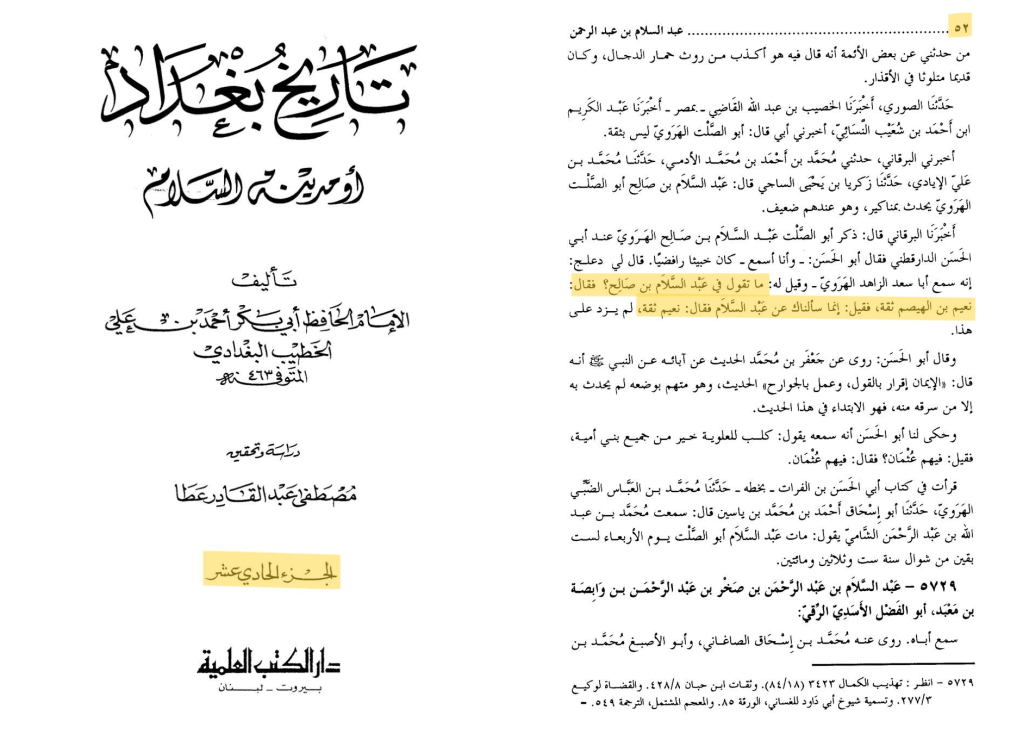 تاريخ بغداد
أو مدينة السلام
تأليف
الإمام الحافظ أبي بكر أحمد بن علي
الخطيب البغدادي
المتوفى ٤٦٣ هـ
دراسة وتحقيق
مصطفى عبد القادر عطا
الجزء الحادي عشر
دار الكتب العلمية
بيروت - لبنان
٥٢ ........ عبد السلام بن عبد الرحمن
من حدثني عن بعض الأئمة أنه قال فيه هو أكذب من روث حمار الدجال، وكان
قديما متلوثا في الأقذار.
حَدَّثَنَا الصوري، أَخْبَرَنَا الخصيب بن عبد الله القَاضِي ـ بمصر ـ أَخْبَرَنَا عَبْد الكَرِيم
ابن أَحْمَد بن شُعَيْب النَّسَائِيّ، أخبرني أبي قال: أبو الصَّلْت الهَرَويّ ليس بثقة.
أخبرني البرقاني، حدثني مُحَمَّد بن أَحْمَد بن مُحَمَّد الأدمي، حَدَّثَنَا مُحَمَّد بن
عَليّ الإيادي، حَدَّثَنَا زَكريا بن يَحْيَى الساجي قال: عَبْد السَّلاَم بن صَالِح أبو الصَّلْت
الهَرَويّ يحدث بمناكير، وهو عندهم ضعيف.
أَخْبَرَنَا البرقاني قال: ذكر أبو الصَّلْت عَبْد السَّلاَم بن صَالِح الهَرَويّ عند أبي
الحَسَن الدارقطني فقال أبو الحَسَن: ـ وأنا أسمع ـ كان خبيثا رافضيًا. قال لي دعلج:
إنه سمع أبا سعد الزاهد الهَرَويّ ـ وقيل له: ما تقول في عَبْد السَّلاَم بن صَالِح؟ فقال:
نعيم بن الهيصم ثقة، فقيل: إنما سألناك عن عَبْد السَّلاَم فقال: نعيم ثقة، لم يزد على
هذا.
وقال أبو الحَسَن: روى عن جَعْفَر بن مُحَمَّد الحديث عن آبائه عن النبي ﷺ أنه
قال: «الإيمان إقرار بالقول، وعمل بالجوارح» الحديث، وهو متهم بوضعه لم يحدث به
إلا من سرقه منه، فهو الابتداء في هذا الحديث.
وحكى لنا أبو الحَسَن أنه سمعه يقول: كلب للعلوية خير من جميع بني أمية،
فقيل: فيهم عُثْمَان؟ فقال: فيهم عُثْمَان.
قرأت في كتاب أبي الحَسَن بن الفرات ـ بخطه ـ حَدَّثَنَا مُحَمَّد بن العَبَّاس الضَّبِّي
الهَرَويّ، حَدَّثَنَا أبو إِسْحَاق أَحْمَد بن مُحَمَّد بن ياسين قال: سمعت مُحَمَّد بن عبد
الله بن عَبْد الرَّحْمَن الشَّاميّ يقول: مات عَبْد السَّلاَم أبو الصَّلْت يوم الأربعاء لست
بقين من شوال سنة ست وثلاثين ومائتين.
٥٧٢٩ – عَبْد السَّلاَم بن عَبْد الرَّحْمَن بن صَخْر بن عَبْد الرَّحْمَن بن وَابِصَة
بن مَعْبَد، أبو الفَضْل الأَسَدِيّ الرِّقِّيّ:
سمع أباه. روى عنه مُحَمَّد بن إِسْحَاق الصاغاني، وأبو الأصبغ مُحَمَّد بن
٥٧٢٩ - انظر : تهذيب الكمال ٣٤٢٣ (٨٤/١٨). وثقات ابن حبان ٤٢٨/٨. والقضاة لوكيع
٢٧٧/٣. وتسمية شيوخ أبي دَاود للغساني، الورقة ٨٥. والمعجم المشتمل، الترجمة ٥٤٩. -